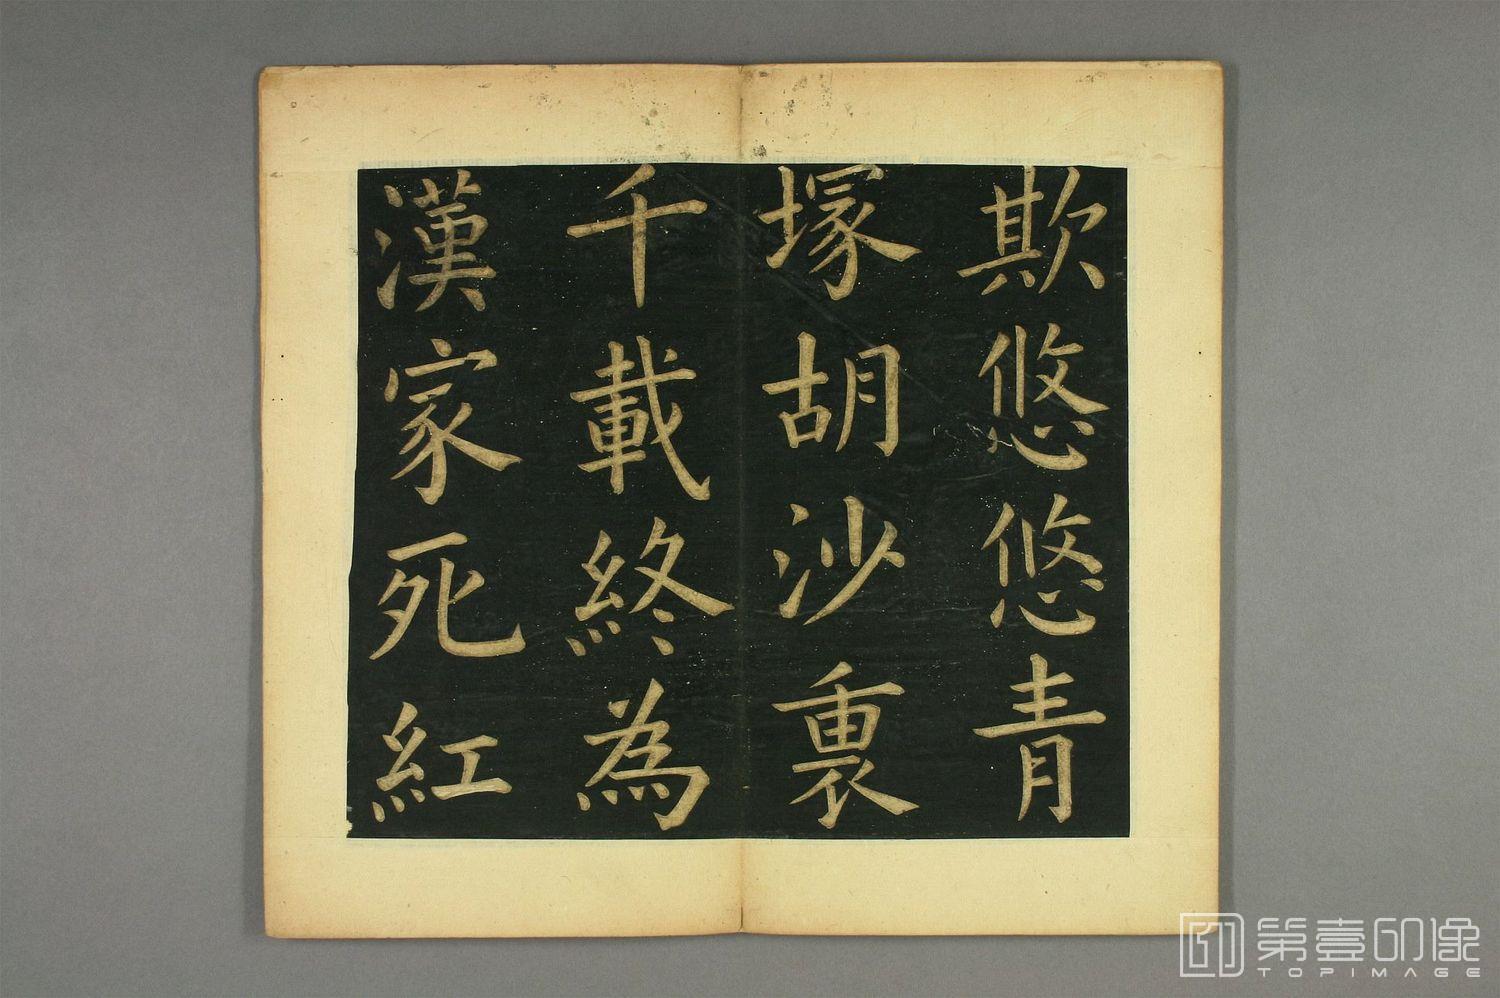 欺悠悠青
塚胡沙裏
千載終為
漢家死紅
第壹印像
TOPIMAGE